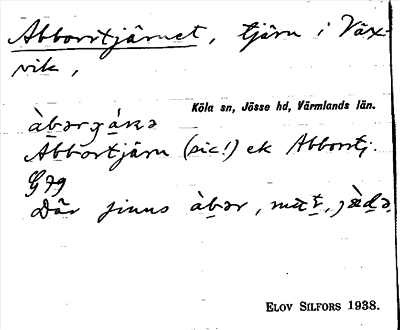 Abborrtjärnet, tjärn i Väx-
vik,
Köla sn, Jösse hd, Värmlands län.
Abbortjärn (sic!) ek Abborrtj.
Där finns àbər, mört,
ELOV SILFORS 1938.